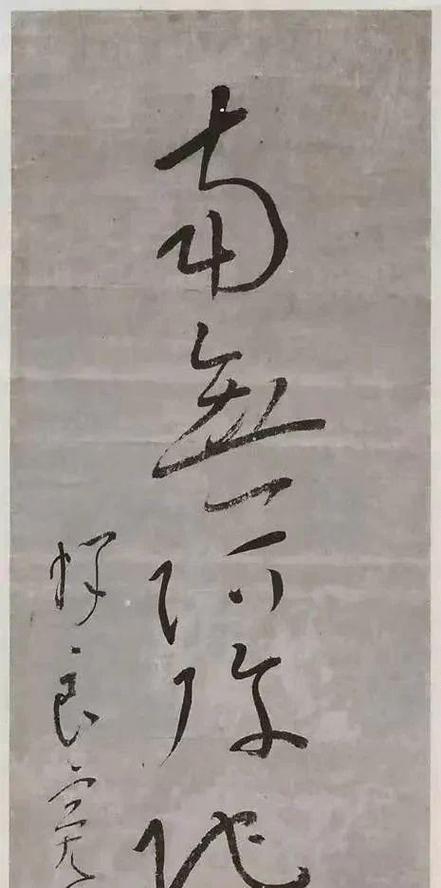 南無阿弥陀
釋良寛